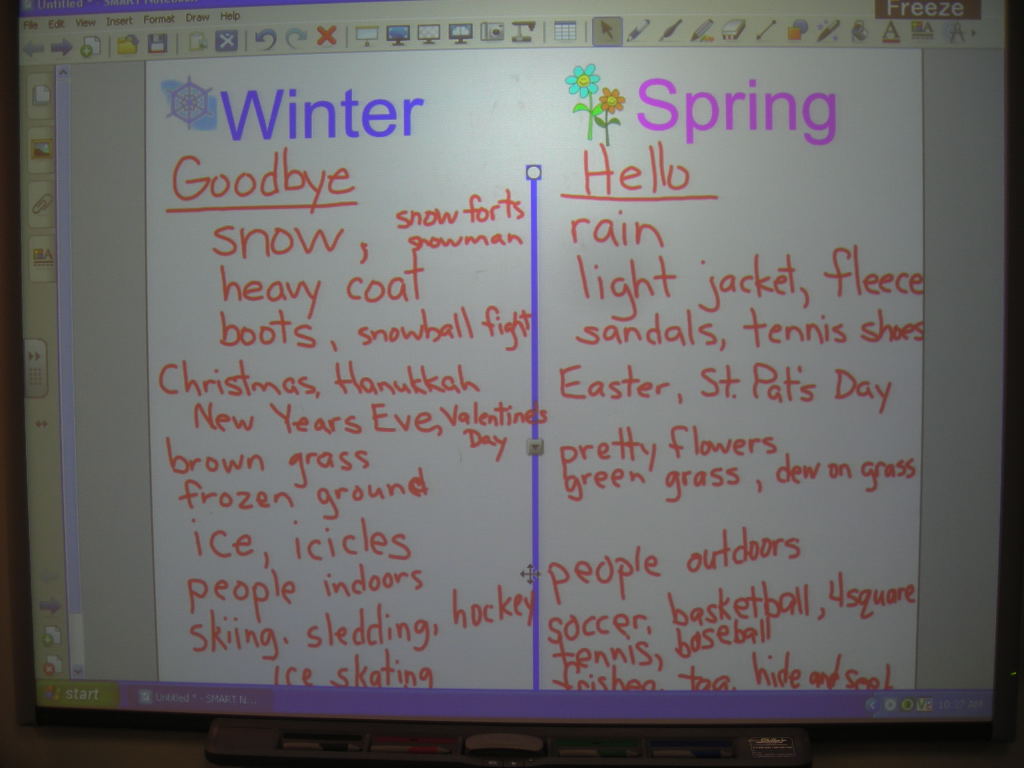 Untitled * - SMART Notebook
Freeze
File Edit View Insert Format Draw Help
Winter
Goodbye
snow, snow forts
snowman
heavy coat
boots, snowball fight
Christmas, Hanukkah
New Years Eve, Valentine's
Day
brown grass
frozen ground
ice, icicles
people indoors
skiing, sledding, hockey
ice skating
Spring
Hello
rain
light jacket, fleece
sandals, tennis shoes
Easter, St. Pat's Day
pretty flowers
green grass, dew on grass
people outdoors
soccer, basketball, 4square
tennis, baseball
frisbee, tag, hide and seek
start
Untitled * - SMART N...
10:37 AM